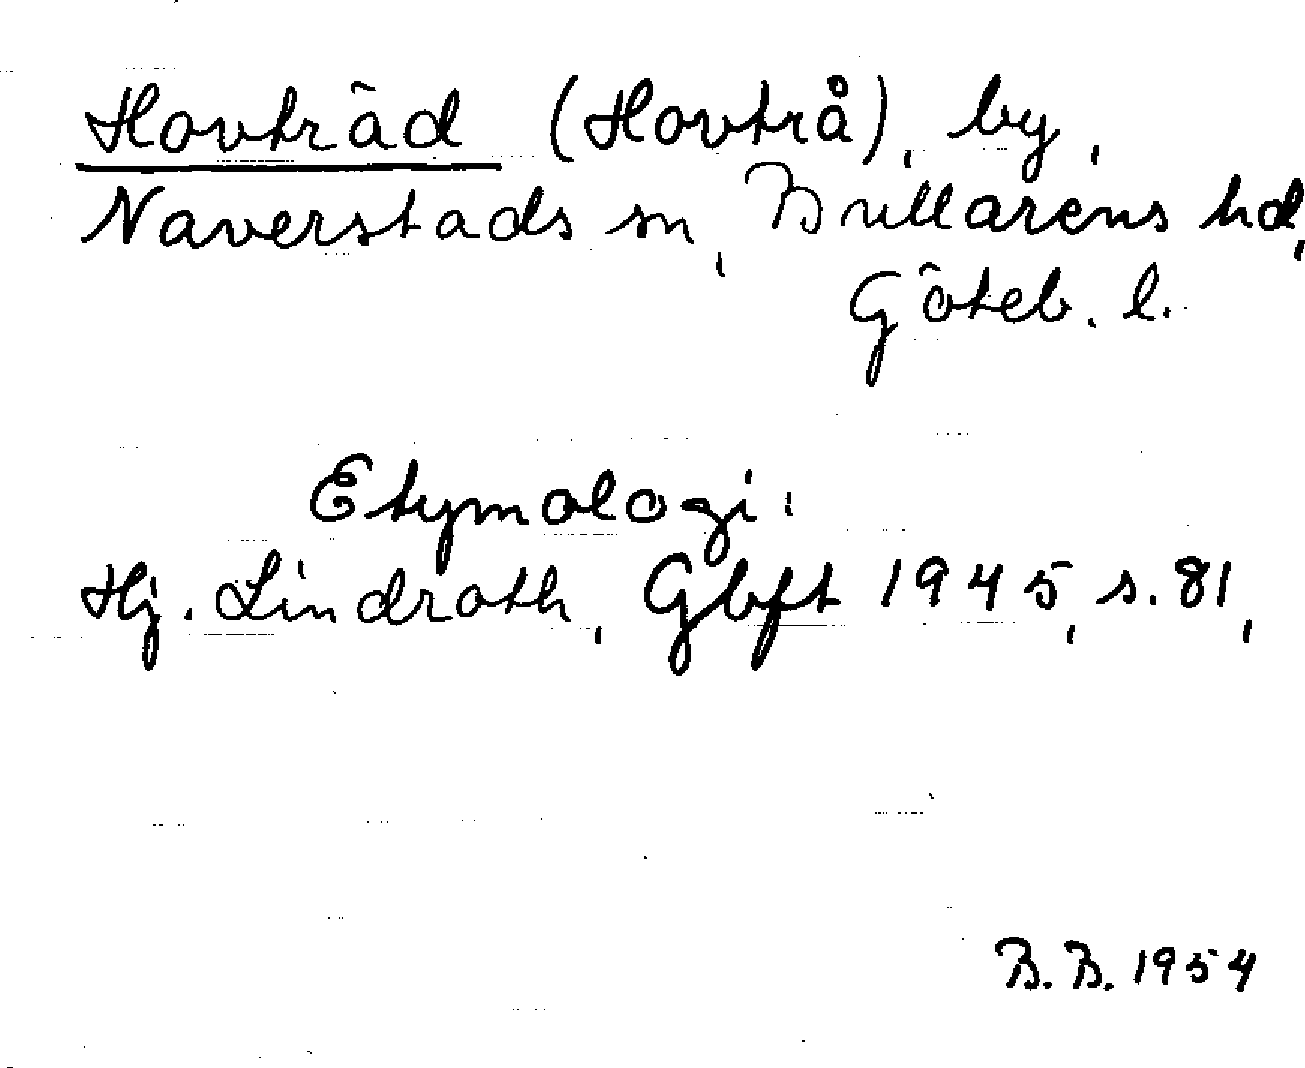 Hovträd (Hovtrå), by,
Naverstads sn, Bullarens hd,
Göteb. l.
Etymologi:
Hj. Lindroth, Gbft 1945, s. 81,
B. B. 1954